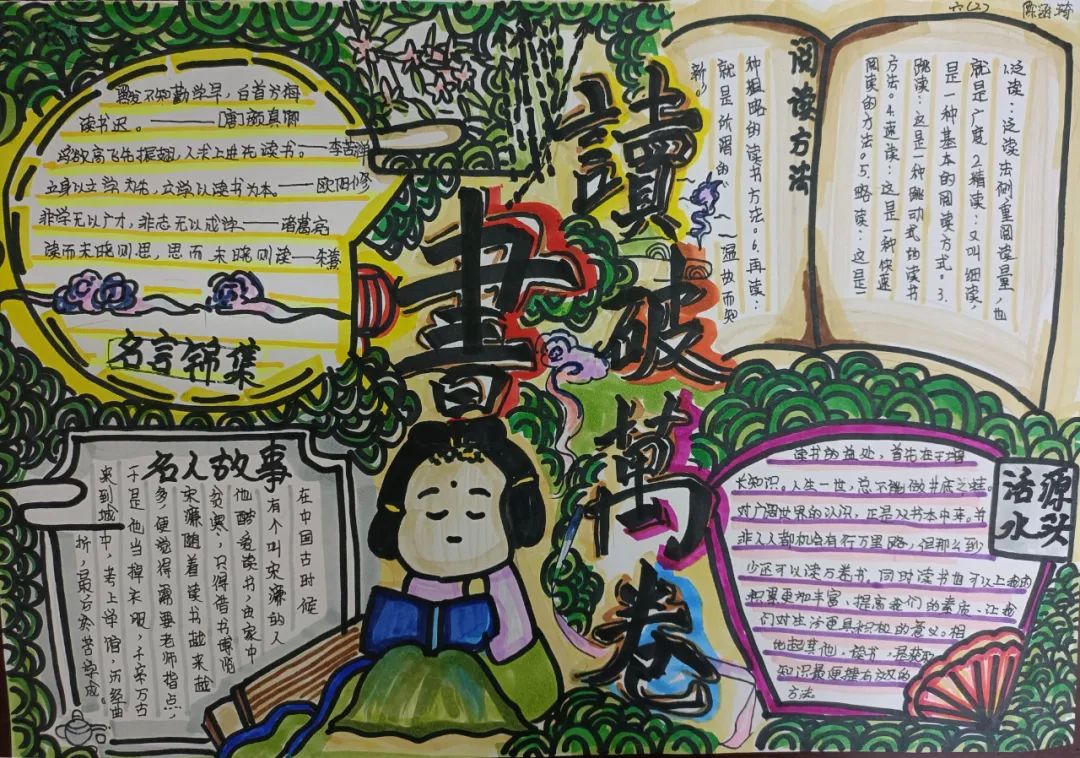 六(2) 陈涵琦
讀
破
萬
卷
書
黑发不知勤学早，白首方悔
读书迟。——[唐]颜真卿
鸟欲高飞先振翅，人求上进先读书。——李苦禅
立身以立学为先，立学以读书为本。——欧阳修
非学无以广才，非志无以成学——诸葛亮
读而未晓则思，思而未晓则读——朱熹
名言锦集
阅读方法
泛读：泛读法侧重阅读量，也
就是广度2.精读：又叫细读，
是一种基本的阅读方式。3.
跳读：这是一种跳动式的读书
方法。4.速读：这是一种快速
阅读的方法。5.略读：这是一
种粗略的读书方法。6.再读：
就是所谓的“温故而知
新”
名人故事
在中国古时候
有个叫宋濂的人
他酷爱读书，由家中
贫寒，只得借书博览
宋濂随着读书越来越
多，便觉得需要老师指点，
于是他当掉衣服，千辛万苦
来到城中，考上学馆，历经曲
折，最方 苦学成。
源头
活水
读书的益处，首先在于增
长知识。人生一世，总不能做井底之蛙。
对广阔世界的认识，正是从书本中来。并
非人人都机会有行万里路，但那么到
少还可以读万卷书，同时读书也可以上我们
积累更加丰富、提高我们的素质、让我
们对生活更具积极的意义。相
比起其他，读书，是获取
知识最便捷有效的
方法